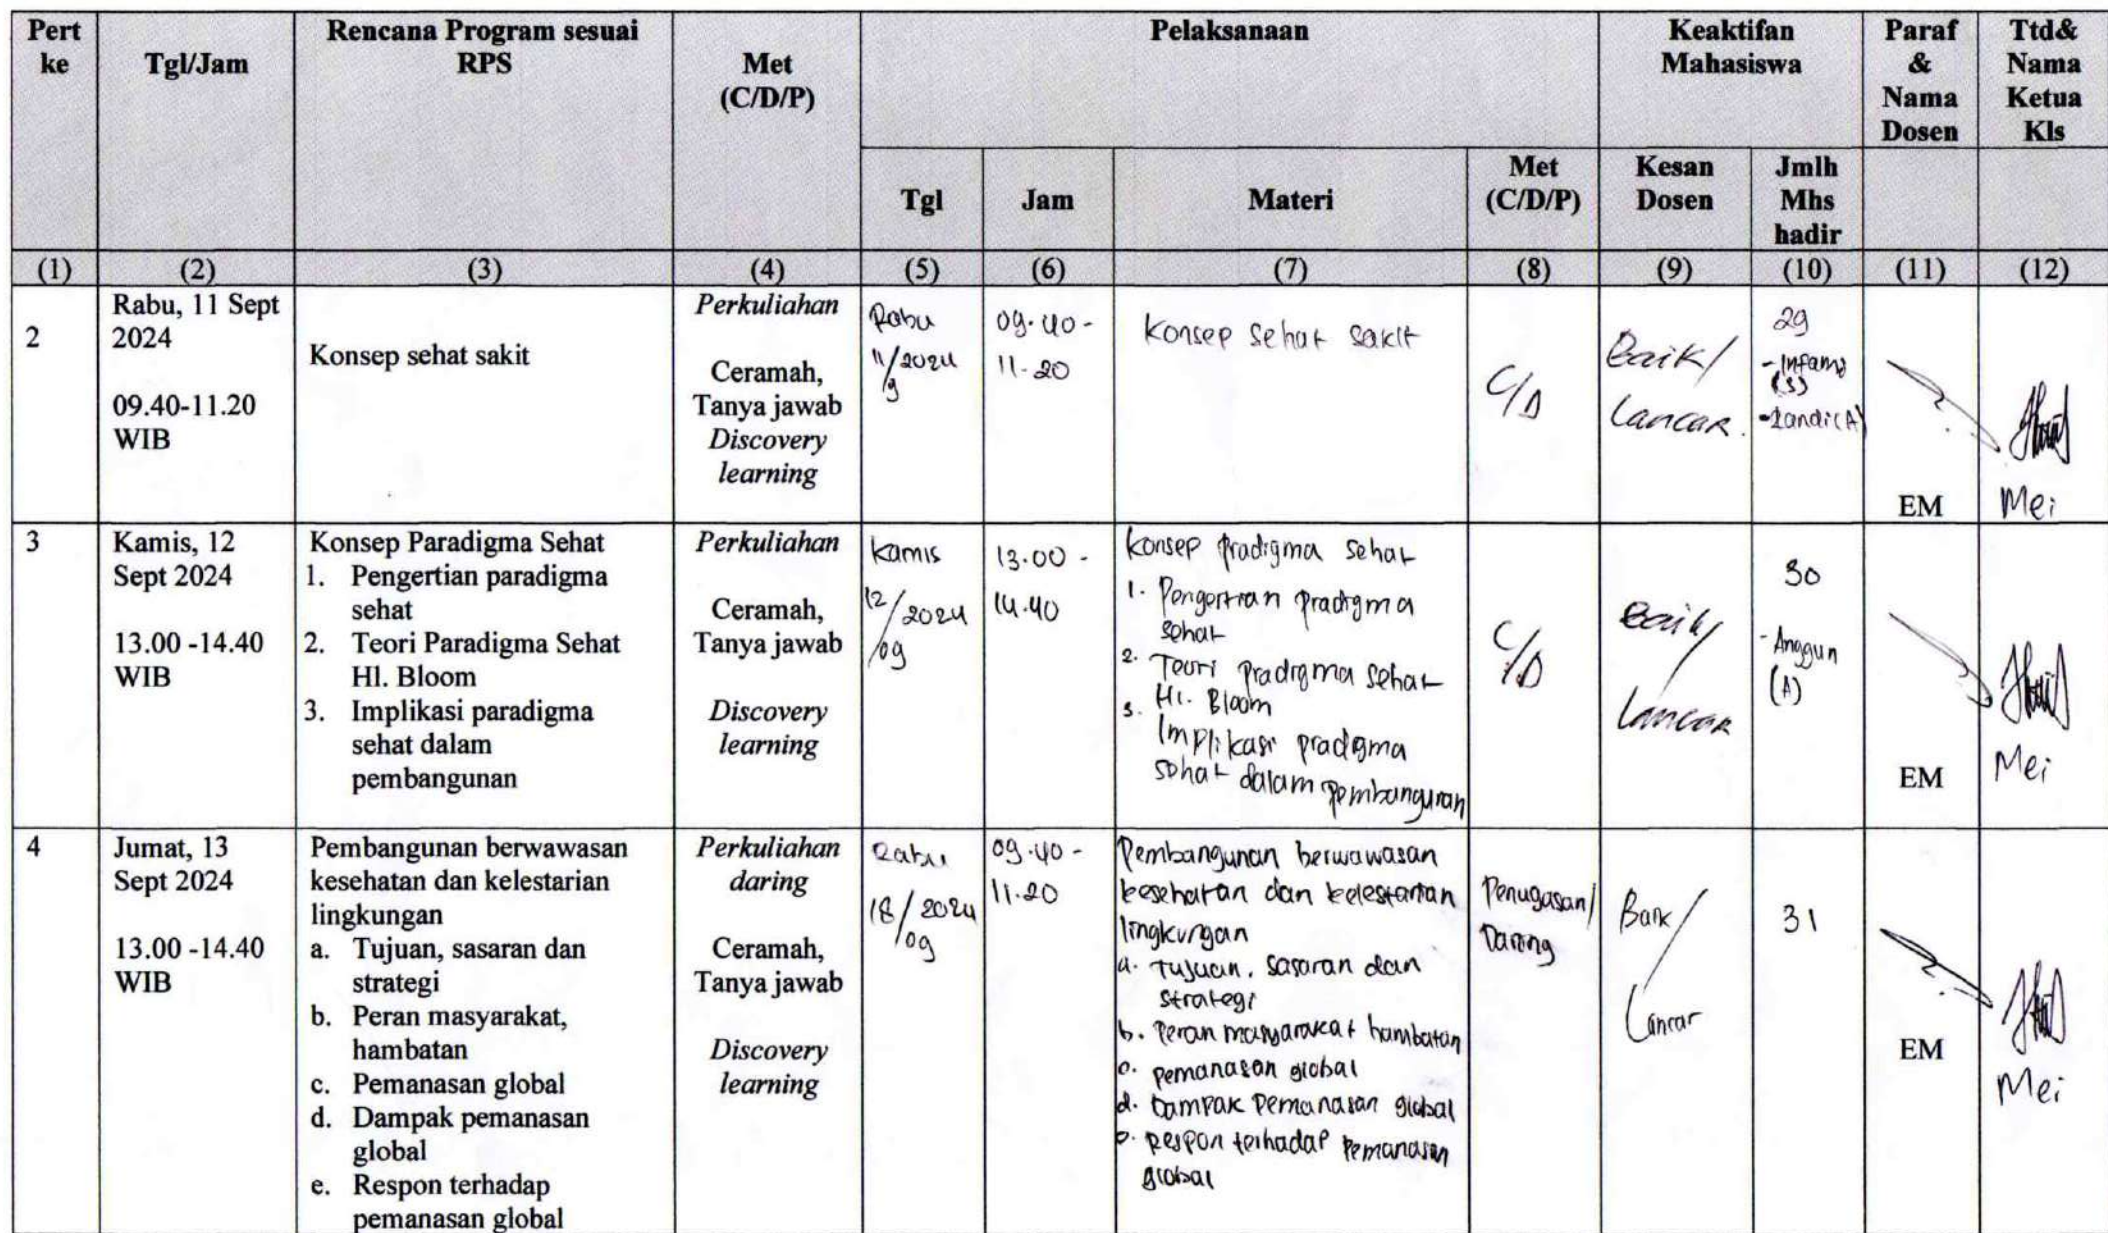 Pert ke
Tgl/Jam
Rencana Program sesuai
RPS
Met
(C/D/P)
Pelaksanaan
Keaktifan
Mahasiswa
Paraf
&
Nama
Dosen
Ttd&
Nama
Ketua
Kls
Tgl
Jam
Materi
Met
(C/D/P)
Kesan
Dosen
Jmlh
Mhs
hadir
(1)
(2)
(3)
(4)
(5)
(6)
(7)
(8)
(9)
(10)
(11)
(12)
2
Rabu, 11 Sept
2024
09.40-11.20
WIB
Konsep sehat sakit
Perkuliahan
Ceramah,
Tanya jawab
Discovery
learning
Rabu
11/9 2024
09.40-
11.20
Konsep sehat sakit
C/D
Baik/
Lancar.
29
(S)
(A)
EM
Mei
3
Kamis, 12
Sept 2024
13.00 -14.40
WIB
Konsep Paradigma Sehat
1. Pengertian paradigma
sehat
2. Teori Paradigma Sehat
Hl. Bloom
3. Implikasi paradigma
sehat dalam
pembangunan
Perkuliahan
Ceramah,
Tanya jawab
Discovery
learning
Kamis
12/09 2024
13.00 -
14.40
Konsep pradigma sehat
1. Pengertian pradigma
sehat
2. Teori pradigma sehat
Hl. Bloom
3. Implikasi pradigma
sehat dalam pembangunan
C/D
Baik/
Lancar
30
- Anggun
(A)
EM
Mei
4
Jumat, 13
Sept 2024
13.00 -14.40
WIB
Pembangunan berwawasan
kesehatan dan kelestarian
lingkungan
a. Tujuan, sasaran dan
strategi
b. Peran masyarakat,
hambatan
c. Pemanasan global
d. Dampak pemanasan
global
e. Respon terhadap
pemanasan global
Perkuliahan
daring
Ceramah,
Tanya jawab
Discovery
learning
Rabu
18/09 2024
09.40 -
11.20
Pembangunan berwawasan
kesehatan dan kelestarian
lingkungan
a. Tujuan, sasaran dan
strategi
b. Peran masyarakat hambatan
c. pemanasan global
d. Dampak Pemanasan global
e. Respon terhadap Pemanasan
global
Penugasan/
Daring
Baik/
Lancar
31
EM
Mei